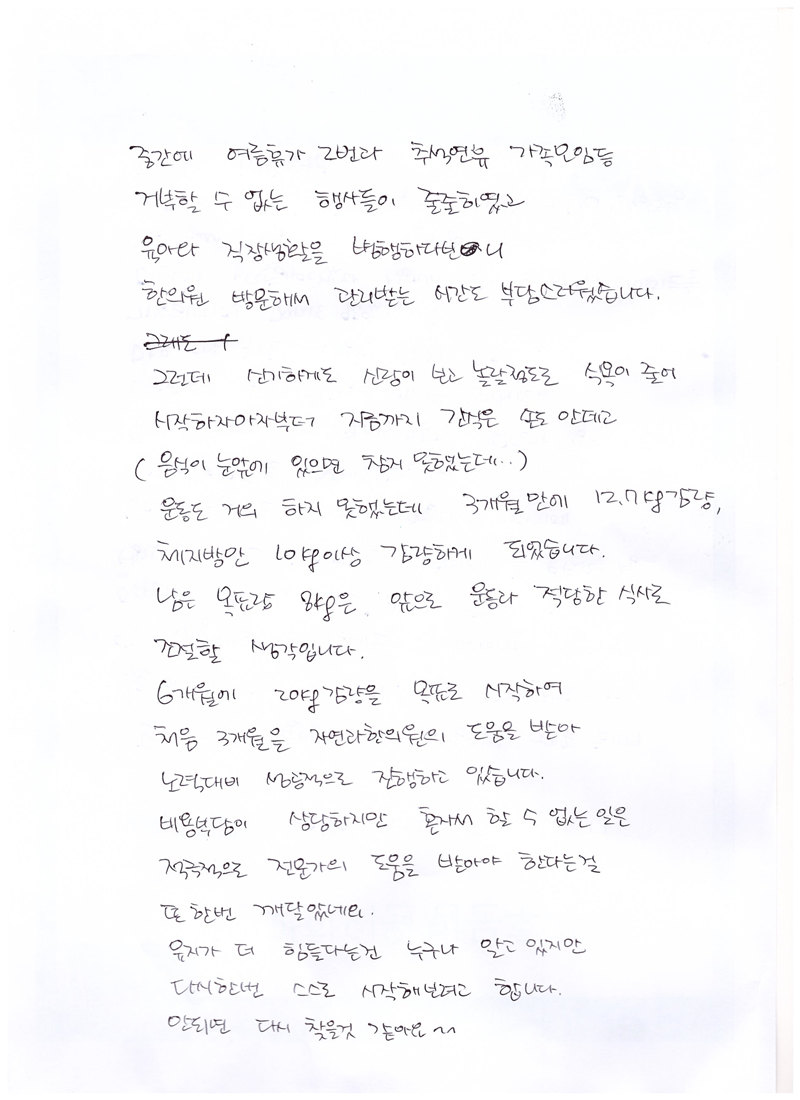 중간에 여름휴가 2번과 추석연휴 가족모임등
거부할 수 없는 행사들이 줄줄히였고
육아와 직장생활을 병행하다보니
한의원 방문해서 관리받는 시간도 부담스러웠습니다.
그래도
그런데 신기하게도 신랑이 보고 놀랄정도로 식욕이 줄어
시작하자마자부터 지금까지 간식은 손도 안데고
(음식이 눈앞에 있으면 참지 못했는데..)
운동도 거의 하지 못했는데 3개월만에 12.7kg감량,
체지방만 10kg이상 감량하게 되었습니다.
남은 목표량 8kg은 앞으로 운동과 적당한 식사로
조절할 생각입니다.
6개월에 20kg감량을 목표로 시작하여
처음 3개월을 자연과한의원의 도움을 받아
노력대비 성공적으로 진행하고 있습니다.
비용부담이 상당하지만 혼자서 할 수 없는 일은
적극적으로 전문가의 도움을 받아야 한다는걸
또 한번 깨달았네요.
유지가 더 힘들다는건 누구나 알고 있지만
다시한번 스스로 시작해보려고 합니다.
안되면 다시 찾을것 같아요~~